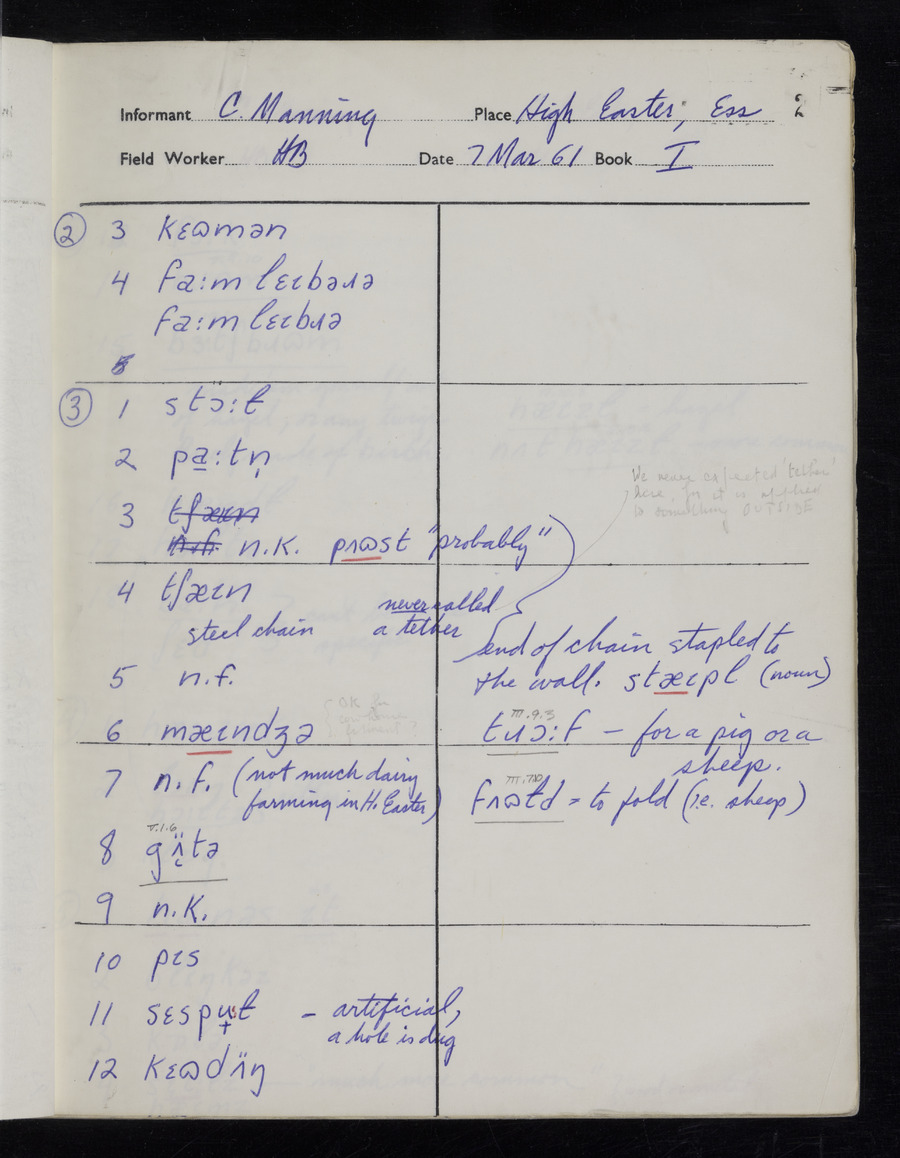 Informant C. Manning Place High Easter, Ess 2
Field Worker HB Date 7 Mar 61 Book I
② 3 kɛɷmən
4 fa:m lɛɩbəɹə
fa:m lɛɩbɹə
5
③ 1 stɔ̈:t
2 pa̱:tn̩
3 tʃæɩn
n.f. n.k. pɹɷst "probably"
We never expected 'tether'
here, for it is applied
to something OUTSIDE
4 tʃæɩn
steel chain never called
a tether
end of chain stapled to
the wall. stæɩpl (noun)
5 n.f.
6 mæɩndʒə
OK
III.9.3
tɹɔ:f – for a pig or a
sheep.
7 n.f. (not much dairy
farming in H. Easter)
fʌɷtd = to fold (i.e. sheep)
V.1.6
8 gʌ̈tə
9 n.k.
10 pɩs
11 sɛspɯ̟t – artificial,
a hole is dug
12 kɛɷdɩ̈ŋ